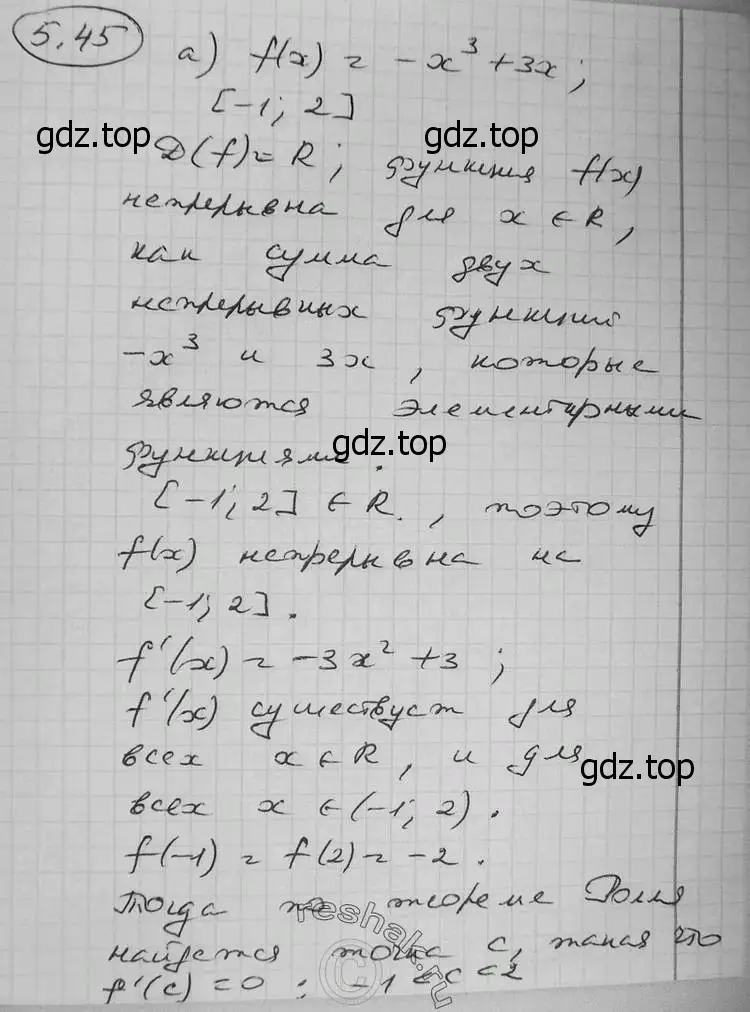 5.45
а) f(x) = -x³ + 3x;
[-1; 2]
gdz.top
gdz.top
D(f) = R; функция f(x)
непрерывна для x ∈ R,
как сумма двух
непрерывных функций
-x³ и 3x, которые
являются элементарными
gdz.top
функциями.
[-1; 2] ∈ R., поэтому
f(x) непрерывна на
[-1; 2].
f'(x) = -3x² + 3;
f'(x) существует для
всех x ∈ R, и для
gdz.top
всех x ∈ (-1; 2).
f(-1) = f(2) = -2.
Тогда по теореме Ролля
reshak.ru
найдется точка c, такая что
f'(c) = 0; -1 < c < 2